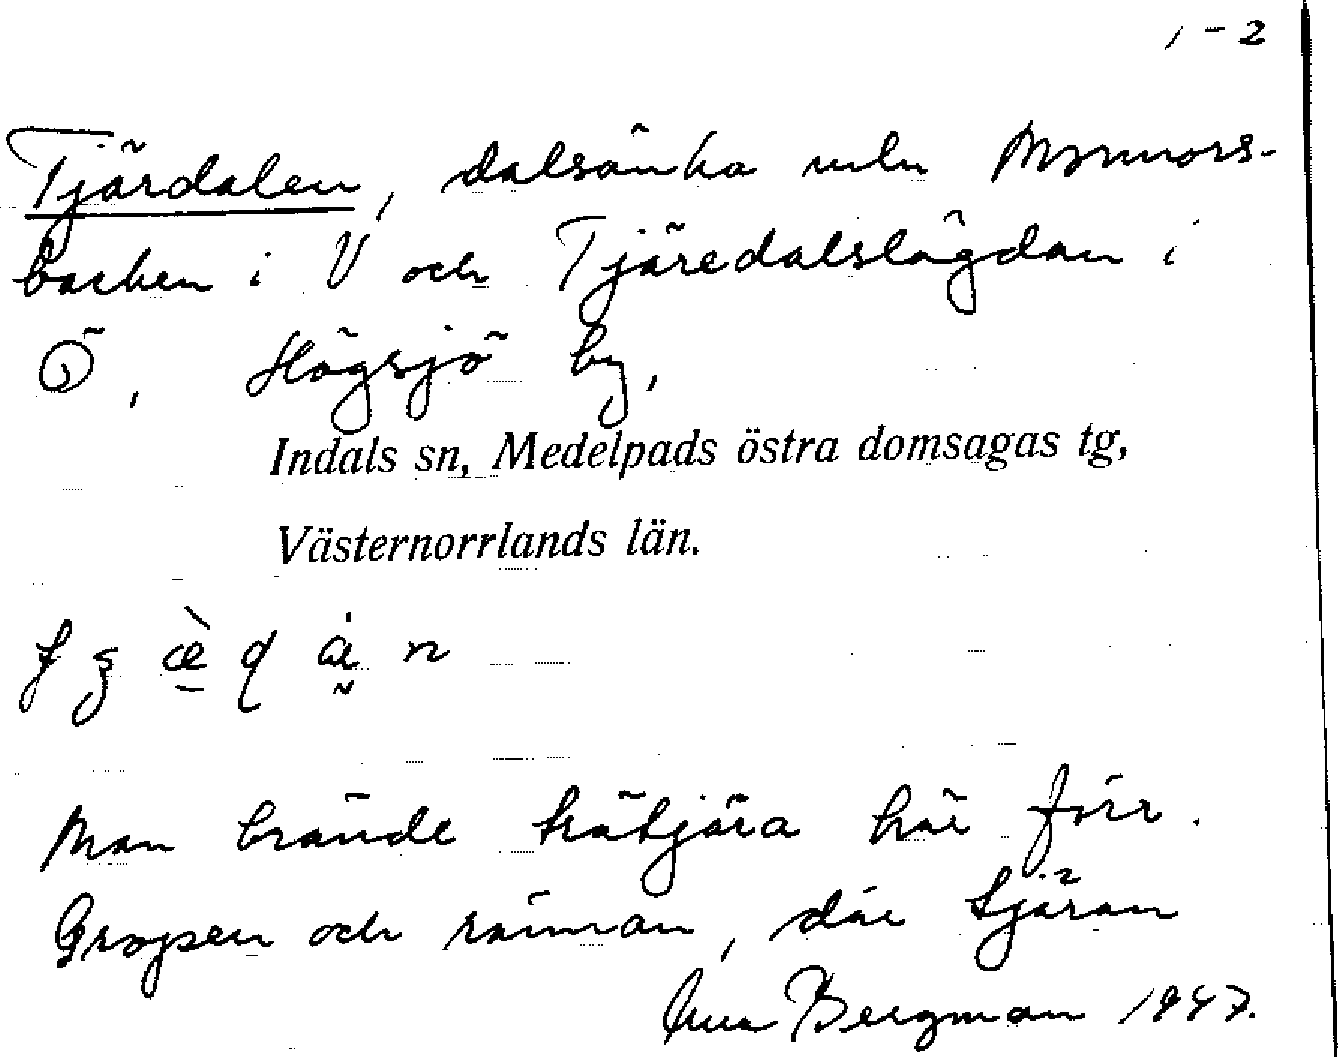 1-2
Tjärdalen, dalsänka mln
backen i V och Tjäredalslägdan i
Ö, Högsjö by,
Indals sn, Medelpads östra domsagas tg,
Västernorrlands län.
Man brände trätjära här förr.
Gropen och rännan, där tjäran
Bergman 1947.